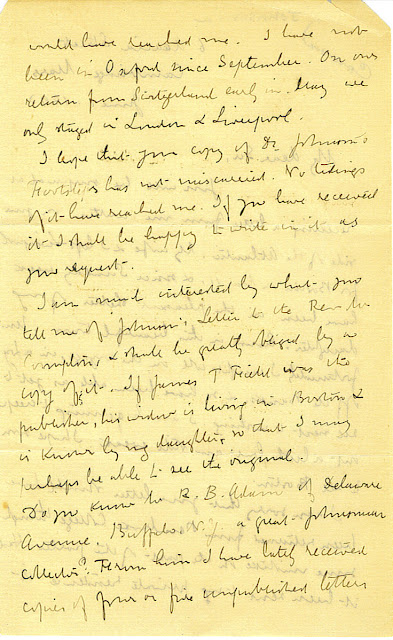 would have reached me. I have not
been in Oxford since September. On our
return from Switzerland early in May we
only stayed in London & Liverpool.
I hope that your copy of Dr Johnson's
has not miscarried. No tidings
of it have reached me. If you have received
it I shall be happy to write in it as
you request.
I am much interested by what you
tell me of Johnson's Letter to the Rev. Mr
Compton, & shall be greatly obliged by a
copy of it. If James T Field was the
publisher, his widow is living in Boston &
is known by my daughter, so that I may
perhaps be able to see the original.
Do you know Mr R. B. Adam of Delaware
Avenue, Buffalo N.Y. a great Johnsonian
collector? From him I have lately received
copies of four or five unpublished letters